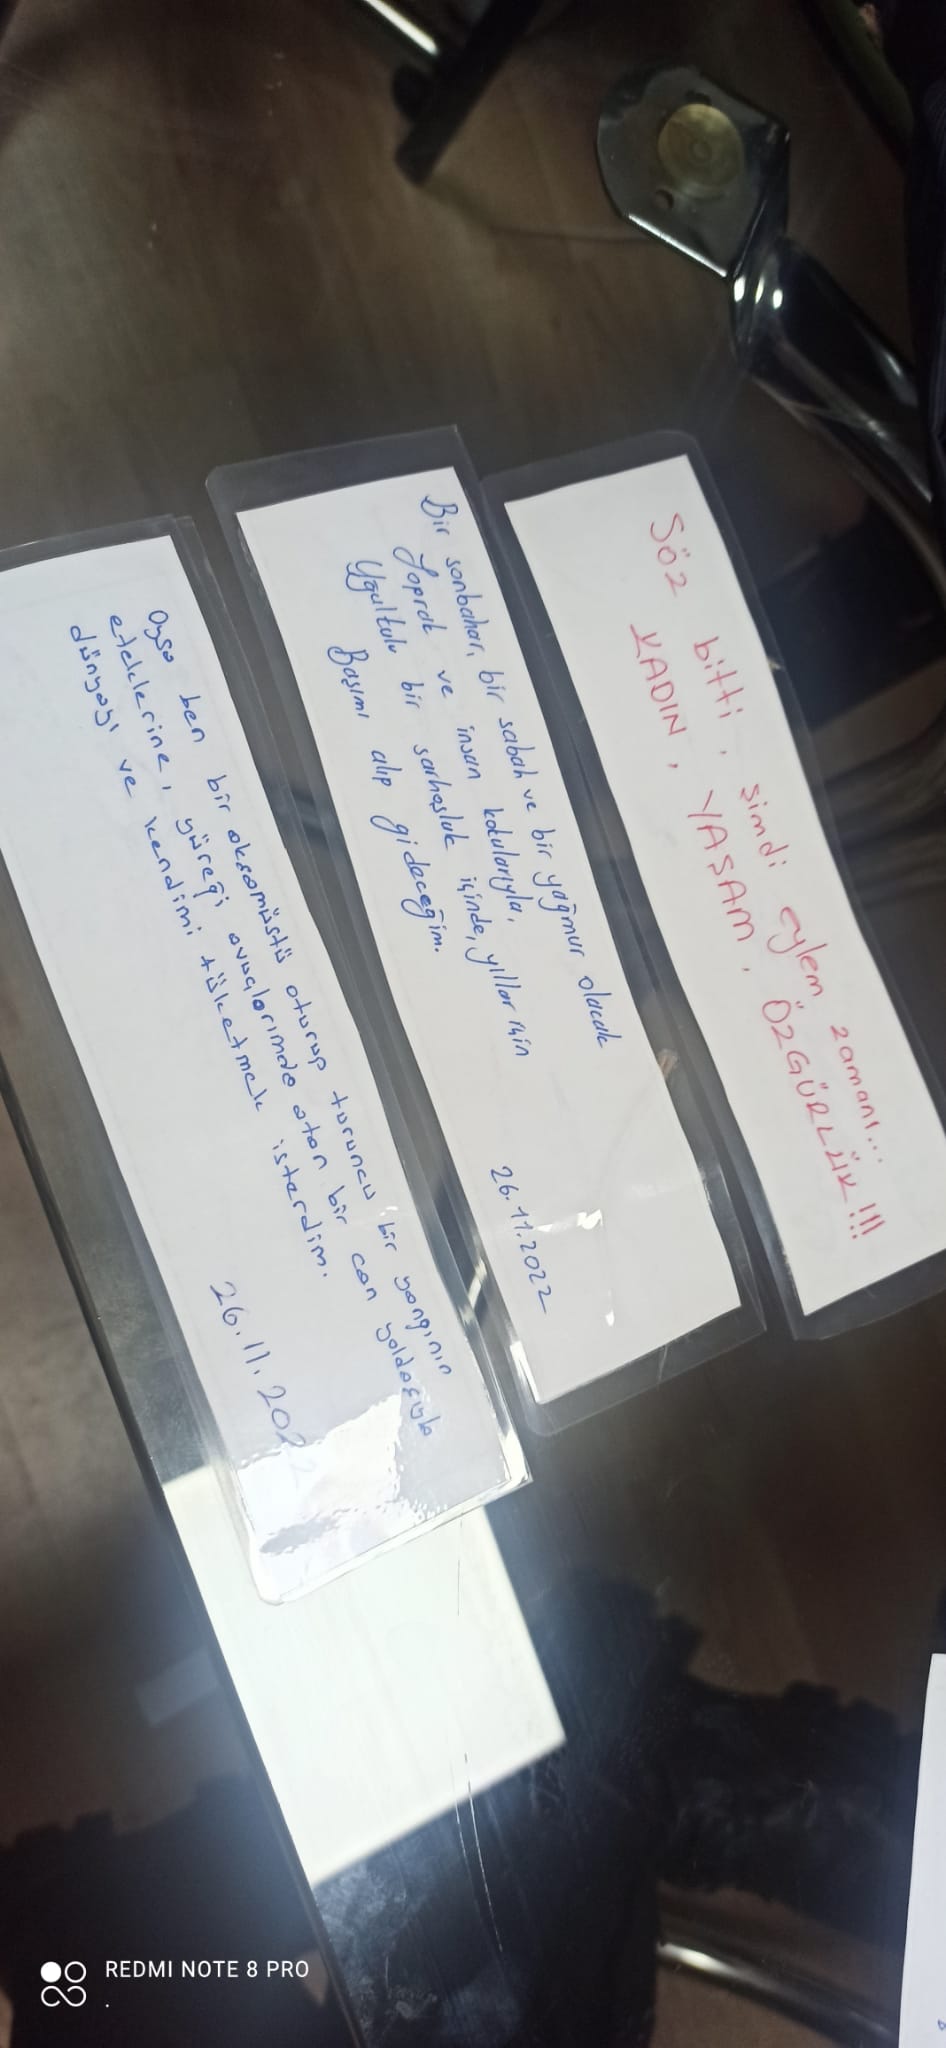 Söz bitti, şimdi eylem zamanı...
KADIN, YAŞAM, ÖZGÜRLÜK!!!
Bir sonbahar, bir sabah ve bir yağmur olacak
Toprak ve insan kokularıyla,
Uğultulu bir sarhoşluk içinde, yıllar için
Başımı alıp gideceğim.
26.11.2022
Oysa ben bir akşamüstü oturup turuncu bir yangının
eteklerine, yüreği avuçlarımda atan bir can yoldaşıyla
dünyayı ve kendimi tüketmek isterdim.
26.11.2022
REDMI NOTE 8 PRO